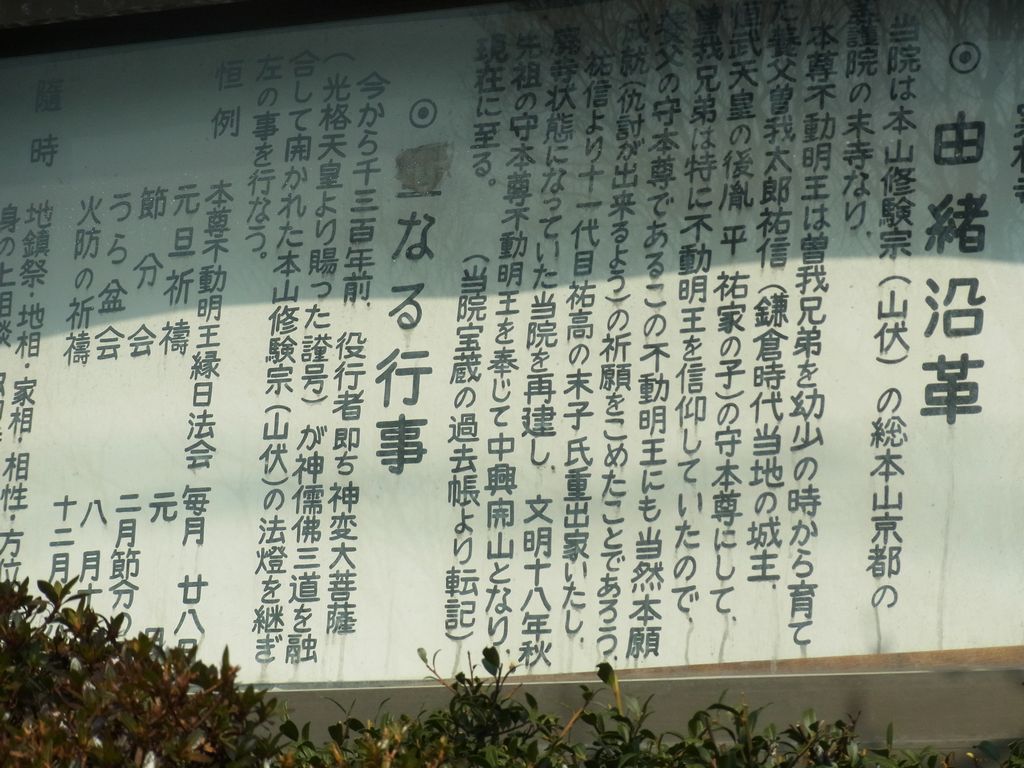 ◉ 由緒沿革
当院は本山修験宗(山伏)の総本山京都の
護院の末寺なり、
本尊不動明王は曽我兄弟を幼少の時から育て
た養父曽我太郎祐信(鎌倉時代当地の城主、
桓武天皇の後胤 平 祐家の子)の守本尊にして、
曽我兄弟は特に不動明王を信仰していたので、
養父の守本尊であるこの不動明王にも当然本願
成就(仇討が出来るよう)の祈願をこめたことであろう、
祐信より十一代目祐高の末子氏重出家いたし、
廃寺状態になっていた当院を再建し、文明十八年秋
先祖の守本尊不動明王を奉じて中興開山となり、
現在に至る。
(当院宝蔵の過去帳より転記)
◉ なる行事
今から千三百年前、役行者即ち神変大菩薩
(光格天皇より賜った諡号)が神儒佛三道を融
合して開かれた本山修験宗(山伏)の法燈を継ぎ
左の事を行なう。
恒例 本尊不動明王縁日法会 毎月 廿八日
元旦祈禱 元
節分会 二月節分の
うら盆会 八月
火防の祈禱 十二月
隨時 地鎮祭・地相・家相・相性・方位
身の上相談